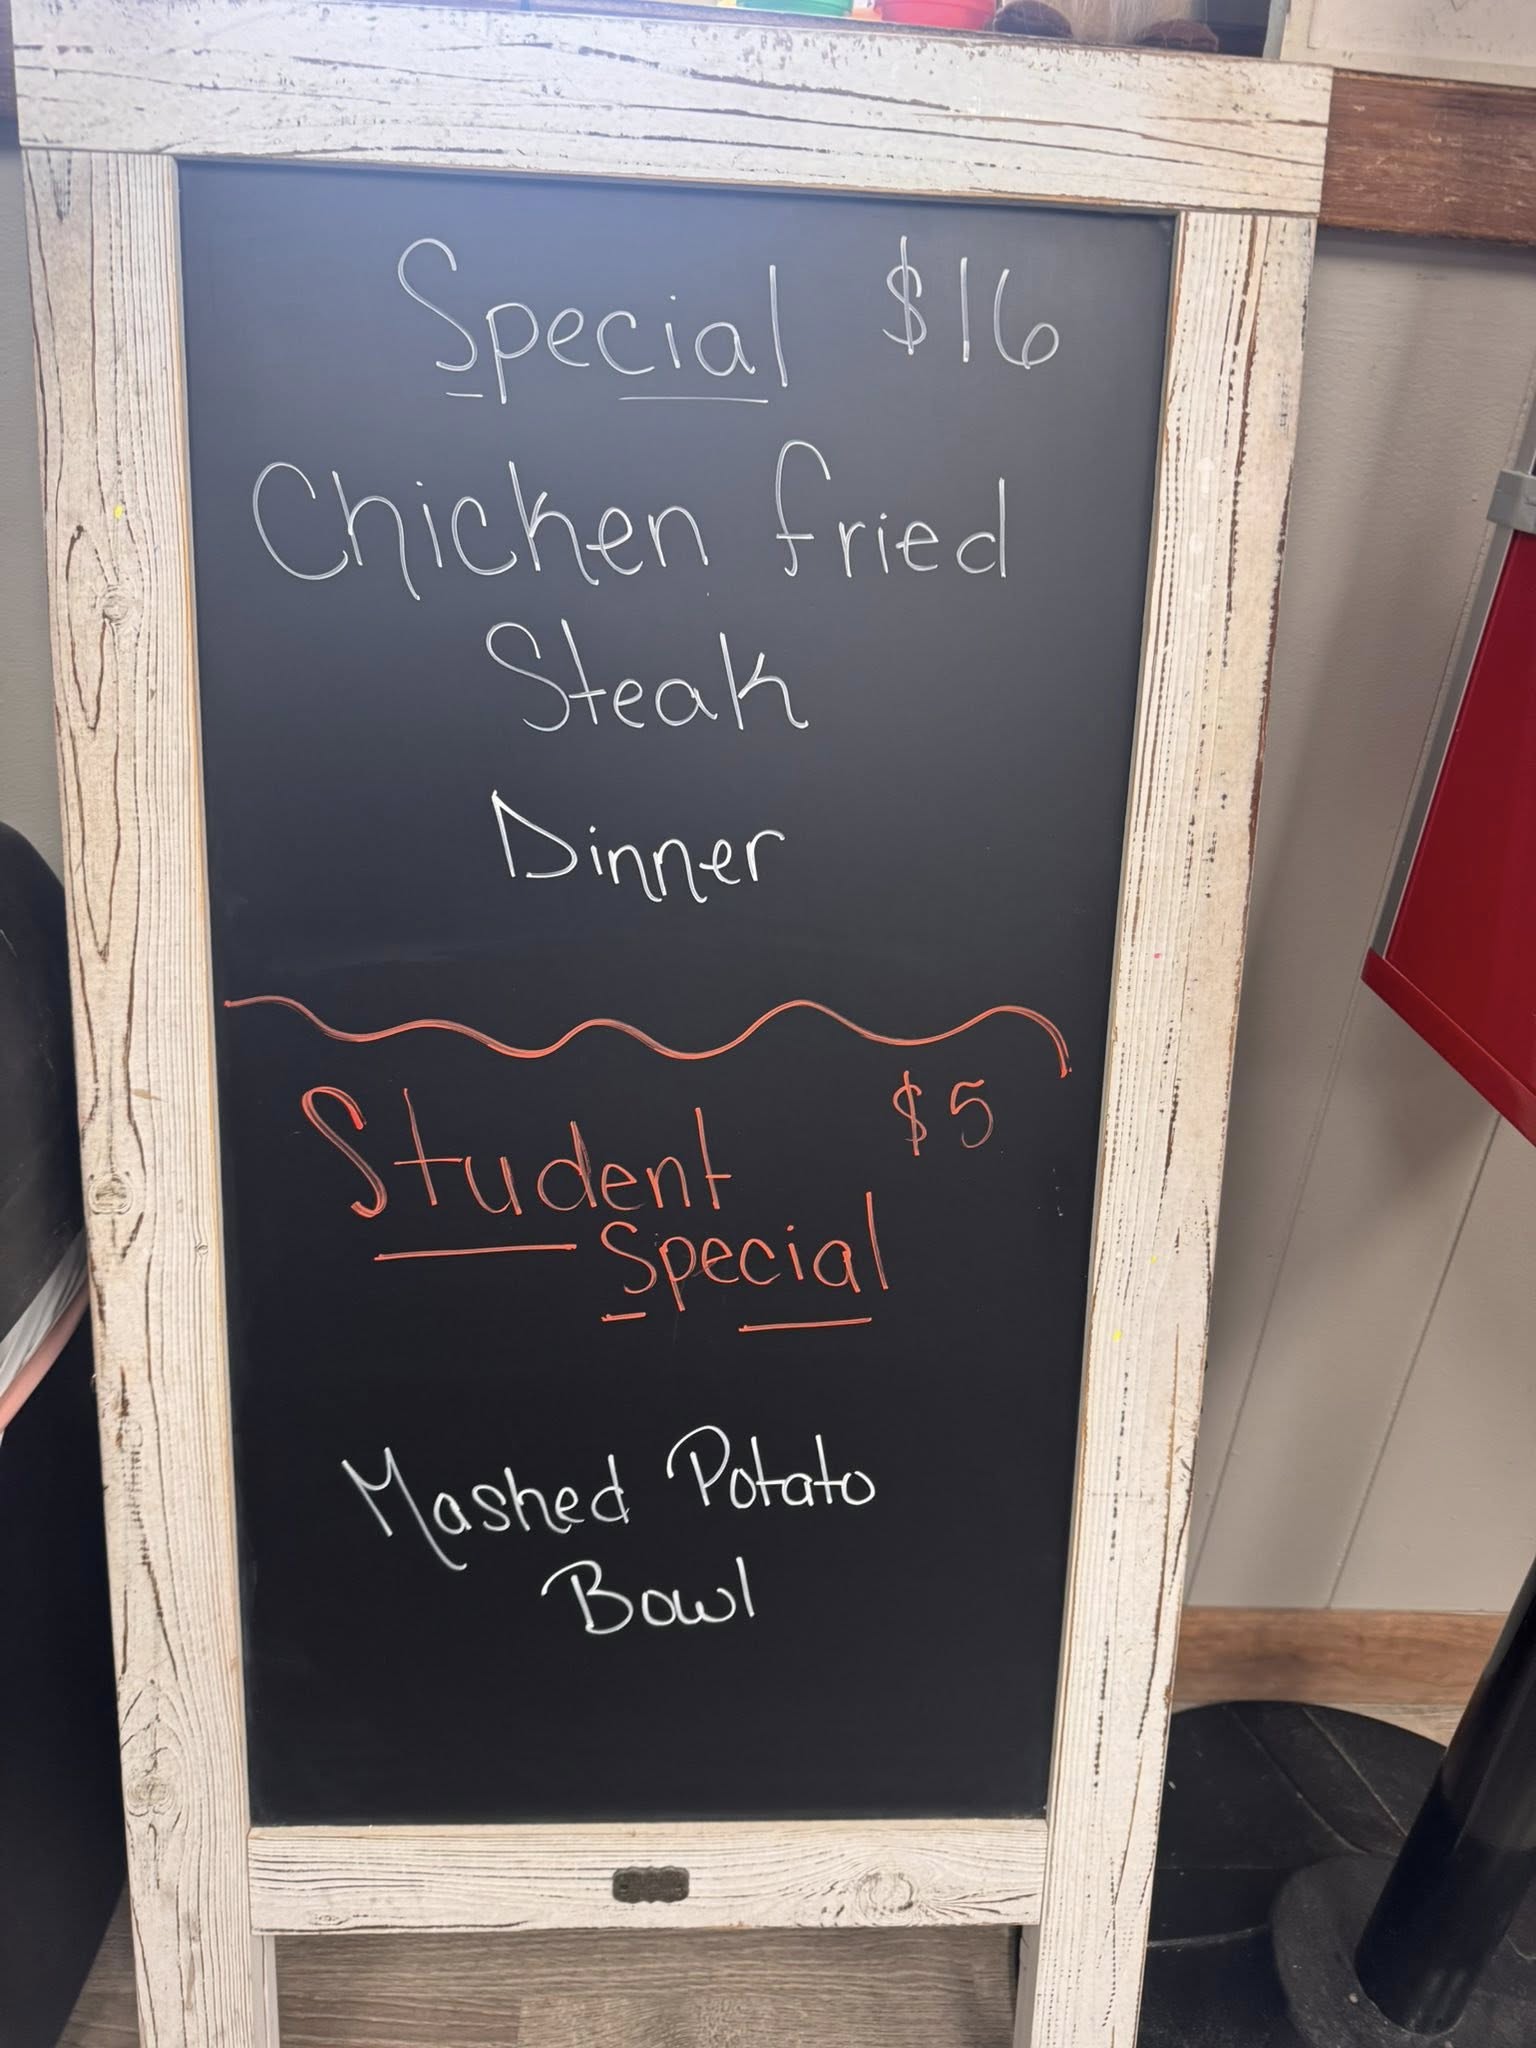 Special $16
Chicken fried
Steak
Dinner
Student $5
Special
Mashed Potato
Bowl